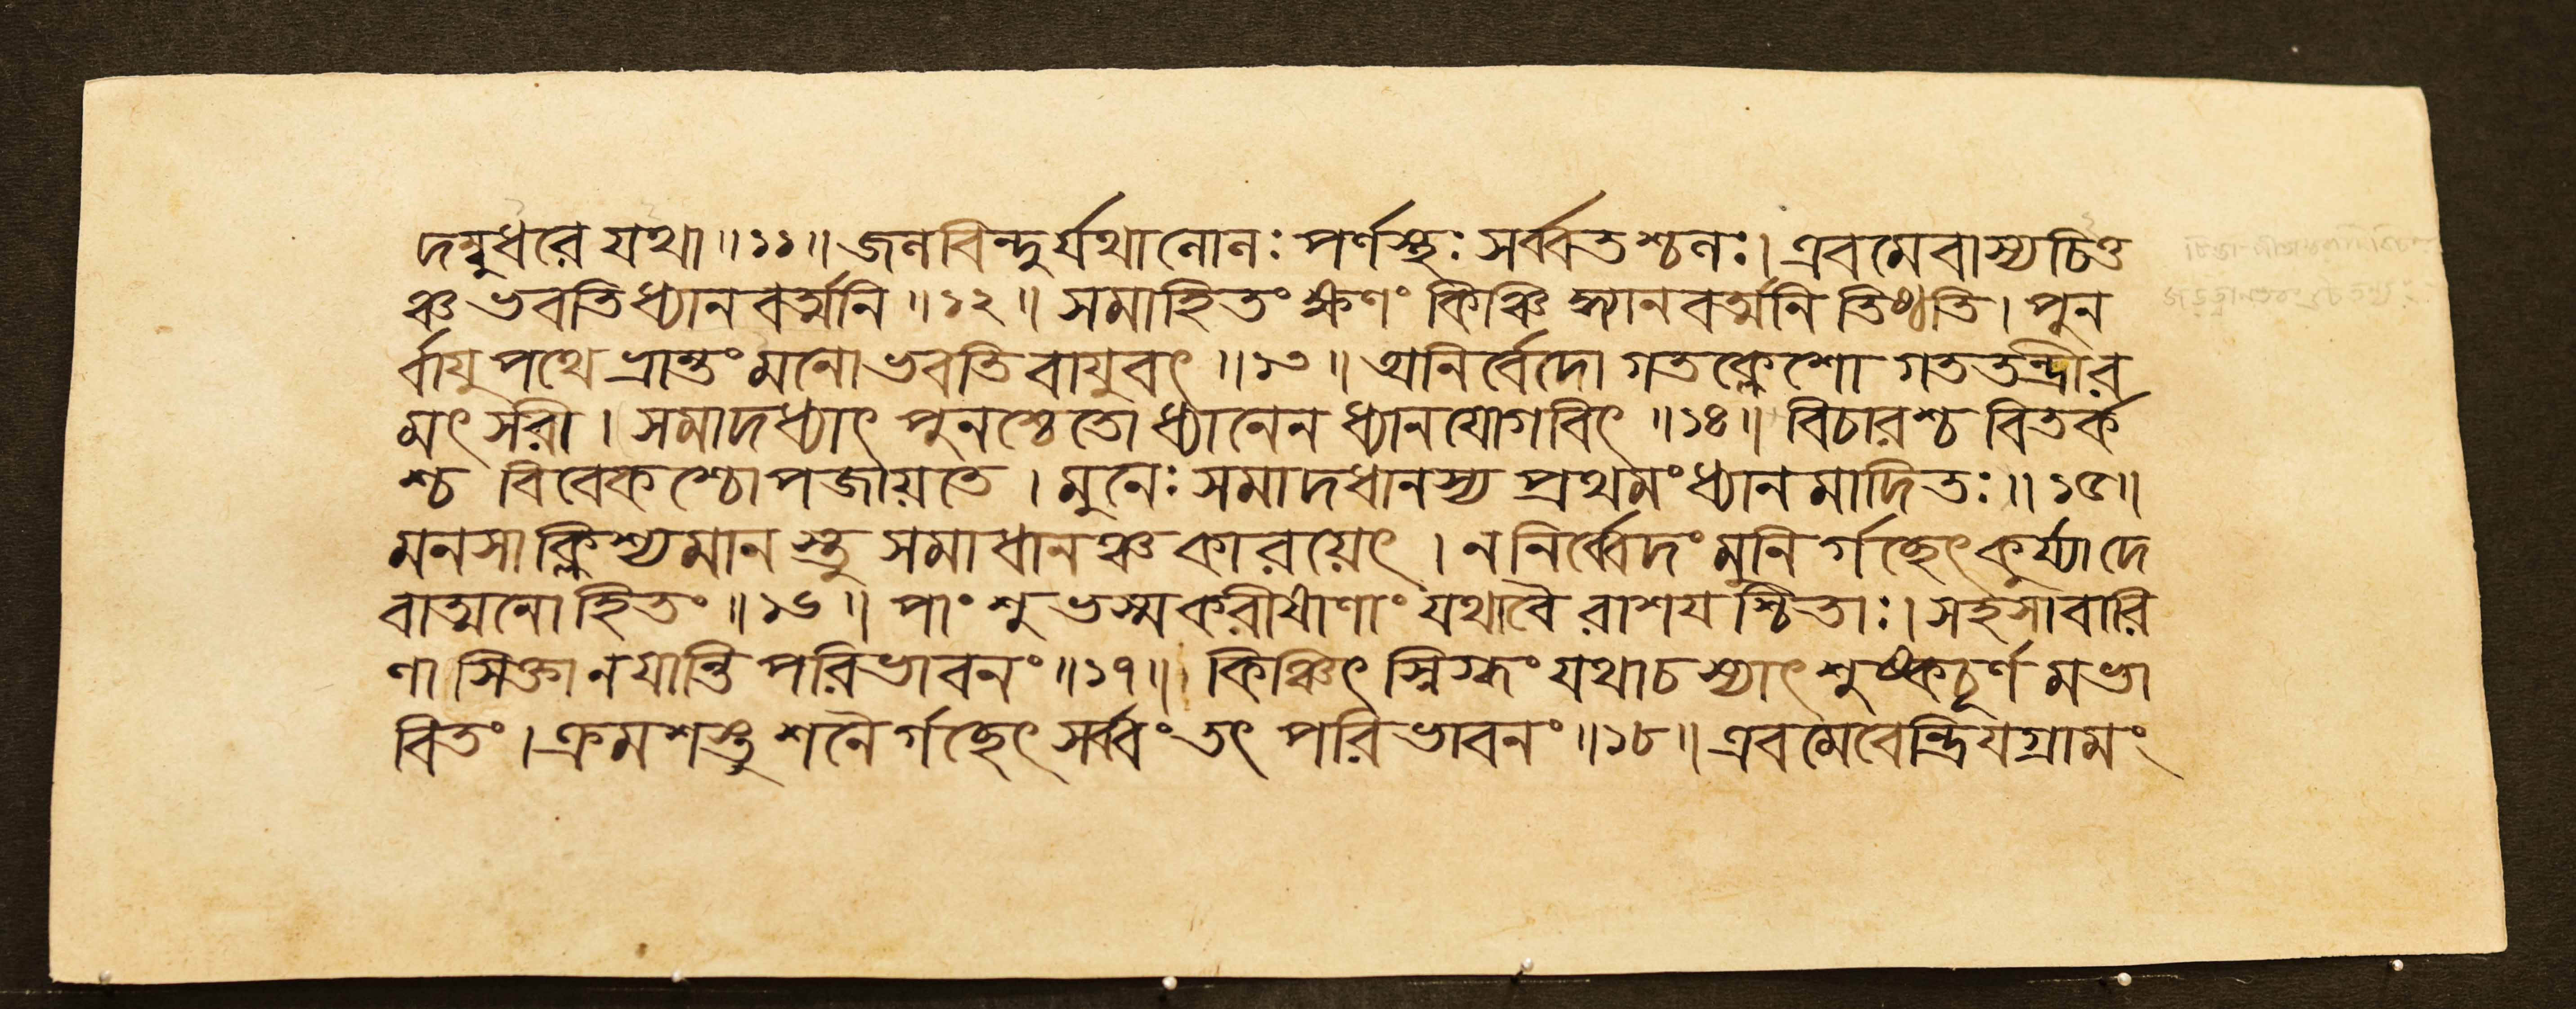 দম্বুধরে যথা ॥১১॥ জলবিন্দুর্যথালোলঃ পর্ণস্থঃ সর্ব্বতশ্চলঃ। এবমেবাস্যচিত্ত
ঞ্চ ভবতিধ্যানবর্ত্মনি ॥১২॥ সমাহিতং ক্ষণং কিঞ্চিদ্ধ্যানবর্ত্মনি তিষ্ঠতি। পুন
র্বায়ুপথে ভ্রান্তং মনো ভবতি বায়ুবৎ ॥১৩॥ অনির্বেদো গতক্লেশো গততন্দ্রীর
মৎসরী। সমাদধ্যাৎ পুনশ্চেতো ধ্যানেন ধ্যানযোগবিৎ ॥১৪॥ বিচারশ্চ বিতর্ক
শ্চ বিবেকশ্চোপজায়তে। মুনেঃ সমাদধানস্য প্রথমংধ্যানমাদিতঃ ॥১৫॥
মনসাক্লিশ্যমানস্তু সমাধানঞ্চ কারয়েৎ। ন নির্ব্বেদং মুনির্গচ্ছেৎকুর্য্যাদে
বাত্মনোহিতং ॥১৬॥ পাংশুভস্মকরীষাণাং যথাবৈ রাশযশ্চিতাঃ। সহসাবারি
ণা সিক্তা নযান্তি পরিভাবনং ॥১৭॥ কিঞ্চিৎ স্নিগ্ধং যথাচস্যাৎ শুষ্কচূর্ণমভা
বিতং। ক্রমশস্তু শনৈর্গচ্ছেৎ সর্ব্বং তৎ পরিভাবনং ॥১৮॥ এবমেবেন্দ্রিযগ্রামং